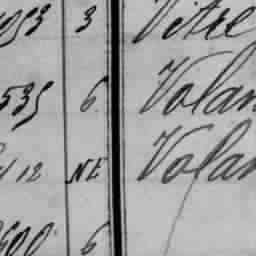 1053 3 Vitel
535 6 Volan
12 NE Volan
600 6